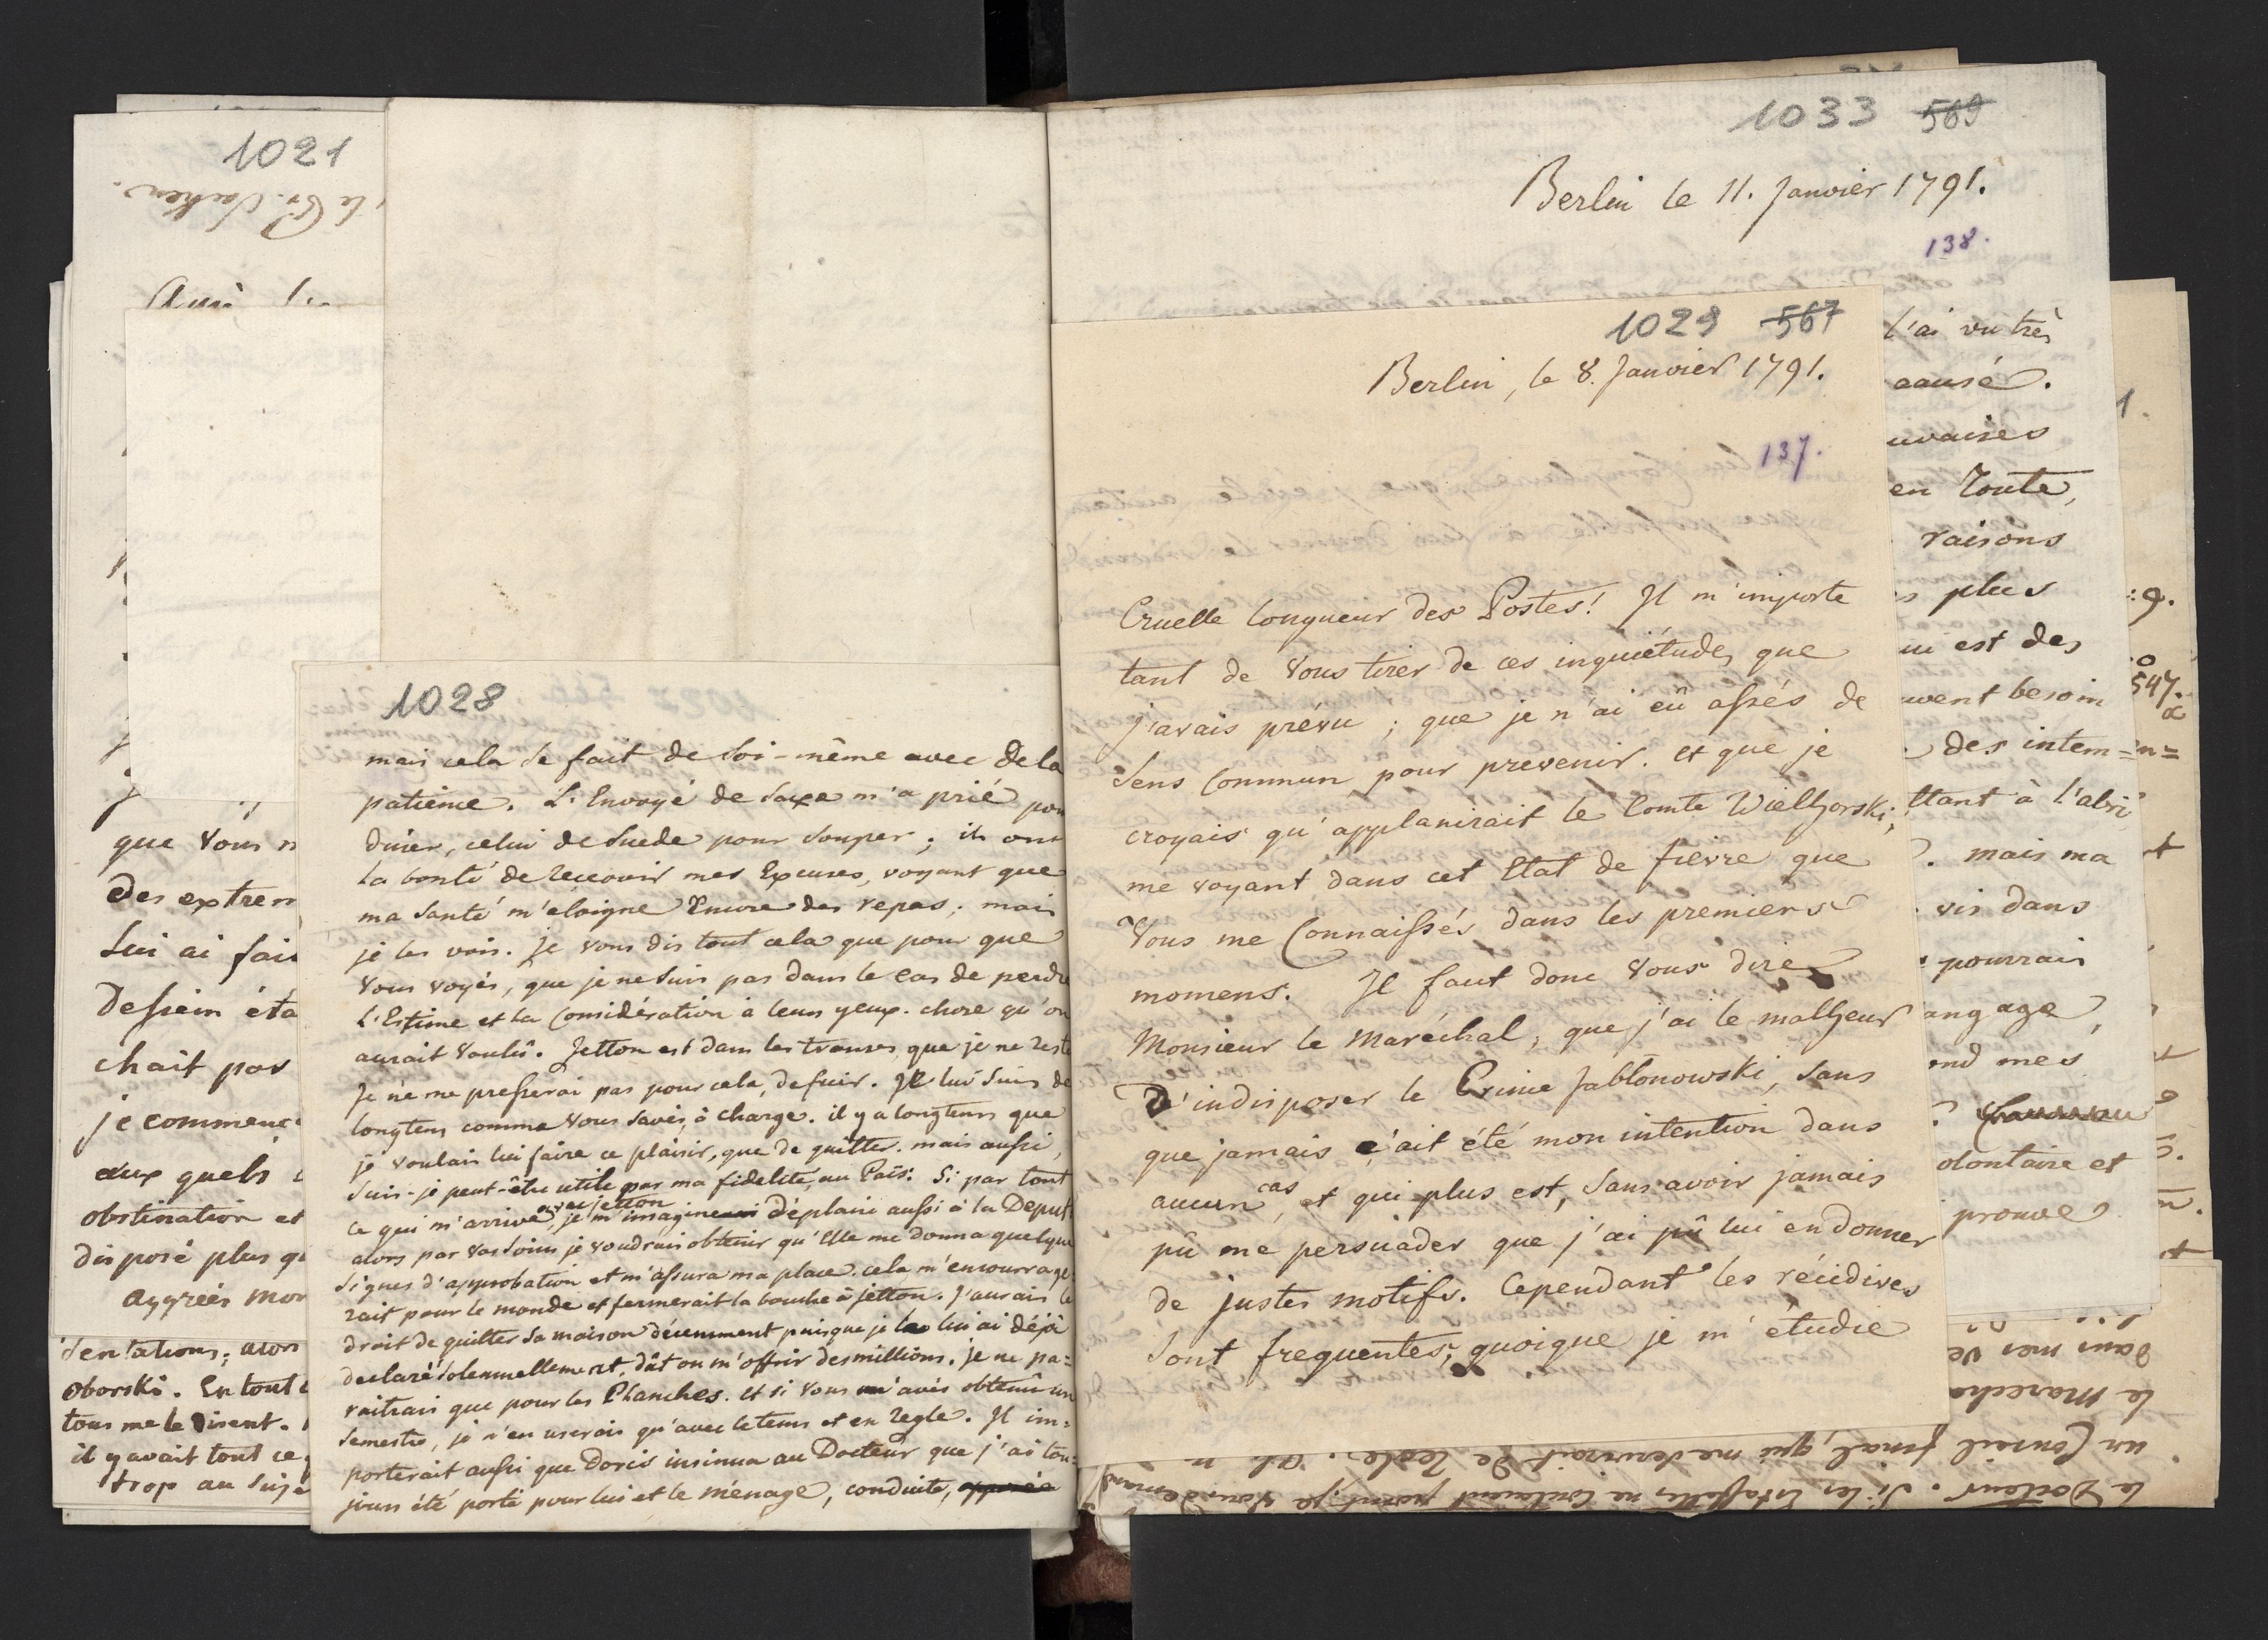 1021
que vous n
des extrem
lui ai fai
dessein éta
chait pas
je commenc
aux quels
obstination et
disposé plus qu
aggréés Mon
sentations; alors
Oborski. En tout
tous me le disent.
il y avait tout ce
trop au suje
1028
mais cela se fait de soi-même avec de la
patience. L'Envoyé de Saxe m'a prié pou
diner, celui de Suede pour souper; ils ont
la bonté de recevoir mes Excuses, voyant que
ma santé m'éloigne Encore des repas; mais
je les vois. je vous dis tout cela que pour que
vous voyés, que je ne suis pas dans le cas de perdre
l'Estime et la Considération à leurs yeux. chose qu'on
aurait voulû. Jetton est dans les transes, que je ne reste
Je ne me presserai pas pour cela, de fuir. Je lui suis de
longtems comme vous savés, à charge. il y a longtems que
je voulais lui faire ce plaisir, que de quitter. mais aussi,
suis-je peut-être utile par ma fidelité, au Païs. Si par tout
ce qui m'arrive avec jetton, je m'imagine déplaire aussi à la Deput:
alors par vos soins je voudrais obtenir qu'Elle me donna quelque
signes d'approbation et m'assura ma place. cela m'encourrage-
rait pour le monde et fermerait la bouche à jetton. J'aurais le
droit de quitter sa maison décemment puisque je le lui ai déjà
declaré solemnellement, dût on m'offrir des millions. je ne pa=
raitrais que pour les Planches. et si vous m'avés obtenû un
semestre, je n'en userois qu'avec le tems et en regle. Il im=
porterait aussi que Doris insinua au Docteur que j'ai tou=
jours été porté pour lui et le ménage, conduite,
1033 569
Berlin le 11. Janvier 1791.
138.
l'ai vu très
causé.
uvaises
en Route,
raisons
plus
ui est des
uvent besoin
des intem=
ttant à l'abri
mais ma
vis dans
pourrais
angage,
end mes
olontaire et
prouve
1029 567
Berlin, le 8. Janvier 1791.
137.
Cruelle longueur des Postes! Il m'importe
tant de vous tirer de ces inquiétudes que
j'avais prévu; que je n'ai eû assés de
sens Commun pour prevenir. et que je
croyais qu'applanirait le Comte Wielhorski;
me voyant dans cet Etat de fievre que
Vous me Connaissés dans les premiers
momens. Il faut donc vous dire
Monsieur le Maréchal, que j'ai le malheur
d'indisposer le Prince Jablonowski, sans
que jamais ç'ait été mon intention dans
aucun cas, et qui plus est, sans avoir jamais
pû me persuader que j'ai pû lui en donner
de justes motifs. Cependant les récidives
sont frequentes; quoique je m'étudie
547.
dans mes ve
le Marecha
un Conseil final, qui me serviroit de Regle.
le Docteur. Si les Estaffettes ne Coutaient point, je vous demand